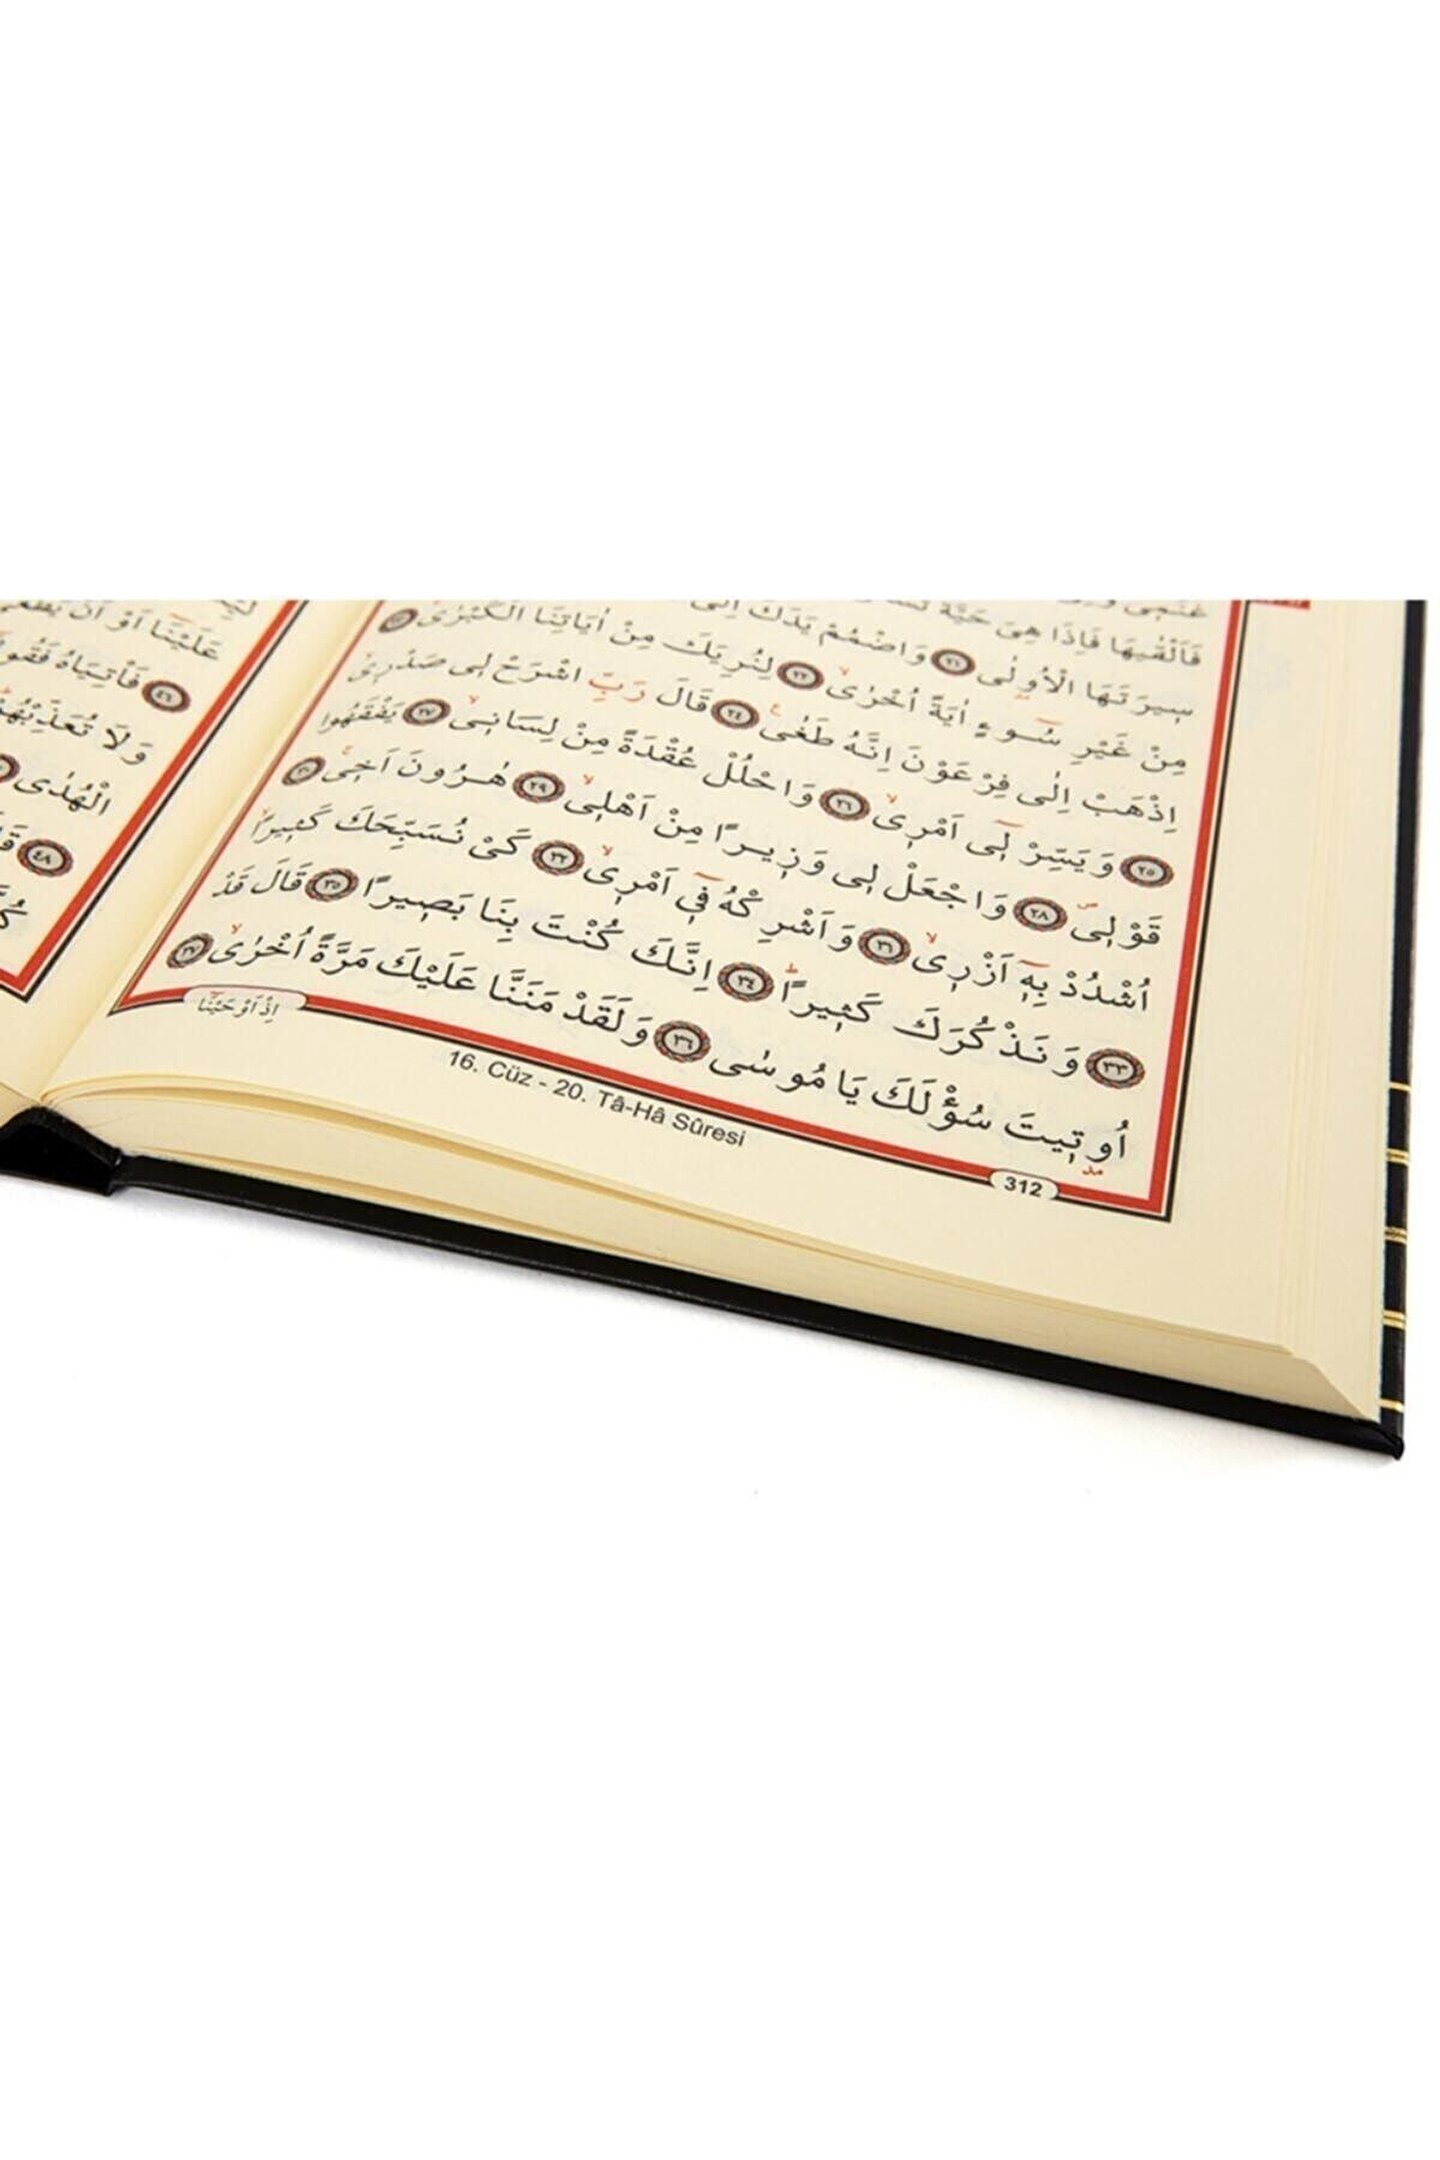 فَاَلْقٰيهَا فَاِذَا هِيَ حَيَّةٌ
سٖيرَتَهَا الْاُولٰى ﴿٢١﴾ وَاضْمُمْ يَدَكَ اِلٰى
مِنْ غَيْرِ سُٓوءٍ اٰيَةً اُخْرٰىۙ ﴿٢٢﴾ لِنُرِيَكَ مِنْ اٰيَاتِنَا الْكُبْرٰىۚ ﴿٢٣﴾
اِذْهَبْ اِلٰى فِرْعَوْنَ اِنَّهُ طَغٰىࣖ ﴿٢٤﴾ قَالَ رَبِّ اشْرَحْ لٖى صَدْرٖىۙ
﴿٢٥﴾ وَيَسِّرْ لٖٓى اَمْرٖىۙ ﴿٢٦﴾ وَاحْلُلْ عُقْدَةً مِنْ لِسَانٖىۙ ﴿٢٧﴾ يَفْقَهُوا
قَوْلٖىࣕ ﴿٢٨﴾ وَاجْعَلْ لٖى وَزٖيرًا مِنْ اَهْلٖىۙ ﴿٢٩﴾ هٰرُونَ اَخٖىۚ ﴿٣٠﴾
اُشْدُدْ بِهٖٓ اَزْرٖىۙ ﴿٣١﴾ وَاَشْرِكْهُ فٖٓى اَمْرٖىۙ ﴿٣٢﴾ كَىْ نُسَبِّحَكَ كَثٖيرًاۙ
﴿٣٣﴾ وَنَذْكُرَكَ كَثٖيرًاؕ ﴿٣٤﴾ اِنَّكَ كُنْتَ بِنَا بَصٖيرًا ﴿٣٥﴾ قَالَ قَدْ
اُوتٖيتَ سُؤْلَكَ يَا مُوسٰى ﴿٣٦﴾ وَلَقَدْ مَنَنَّا عَلَيْكَ مَرَّةً اُخْرٰىۙ ﴿٣٧﴾
مد
312
اِذْ اَوْحَيْنَا
16. Cüz - 20. Tâ-Hâ Sûresi
عَلَيْنَا اَوْ اَنْ يَطْغٰى
﴿٤٦﴾ فَاْتِيَاهُ فَقُولَا
وَلَا تُعَذِّبْهُمْ
الْهُدٰى
﴿٤٨﴾